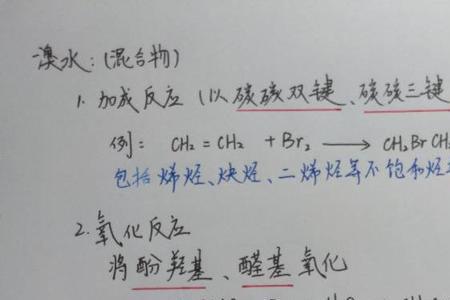 溴水：(混合物)
1. 加成反应 (以碳碳双键、碳碳三键
例： CH₂=CH₂ + Br₂ ⟶ CH₂BrCH
包括烯烃、炔烃、二烯烃等不饱和烃
2. 氧化反应
将酚羟基、醛基氧化